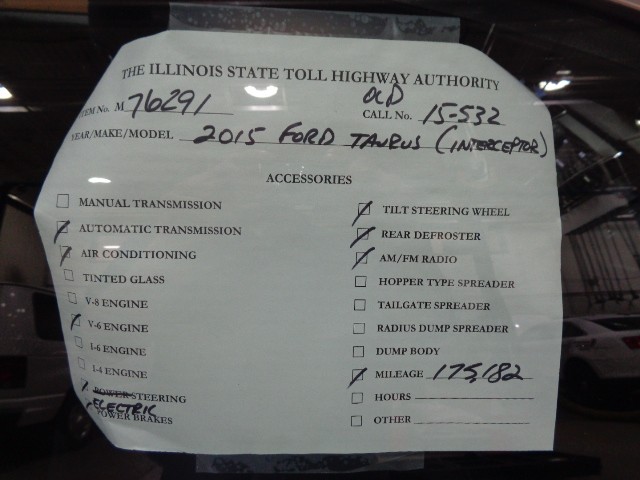 THE ILLINOIS STATE TOLL HIGHWAY AUTHORITY
ITEM No. M76291 OLD CALL No. 15-532
YEAR/MAKE/MODEL 2015 FORD TAURUS (INTERCEPTOR)
ACCESSORIES
MANUAL TRANSMISSION
AUTOMATIC TRANSMISSION
AIR CONDITIONING
TINTED GLASS
V-8 ENGINE
V-6 ENGINE
I-6 ENGINE
I-4 ENGINE
POWER STEERING
ELECTRIC
POWER BRAKES
TILT STEERING WHEEL
REAR DEFROSTER
AM/FM RADIO
HOPPER TYPE SPREADER
TAILGATE SPREADER
RADIUS DUMP SPREADER
DUMP BODY
MILEAGE 175,182
HOURS
OTHER